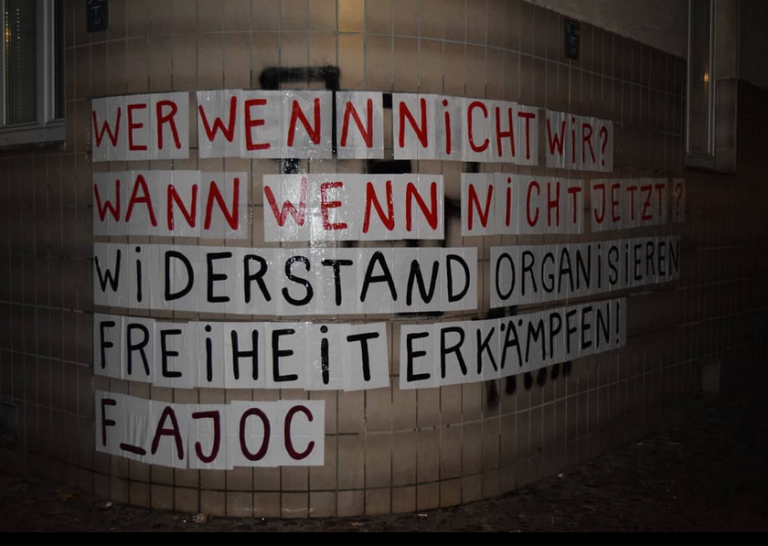 WER WENN NiCHT WiR?
WANN WENN NiCHT JETZT?
WiDERSTAND ORGANiSiEREN
FREiHEiT ERKÄMPFEN!
F_AJOC